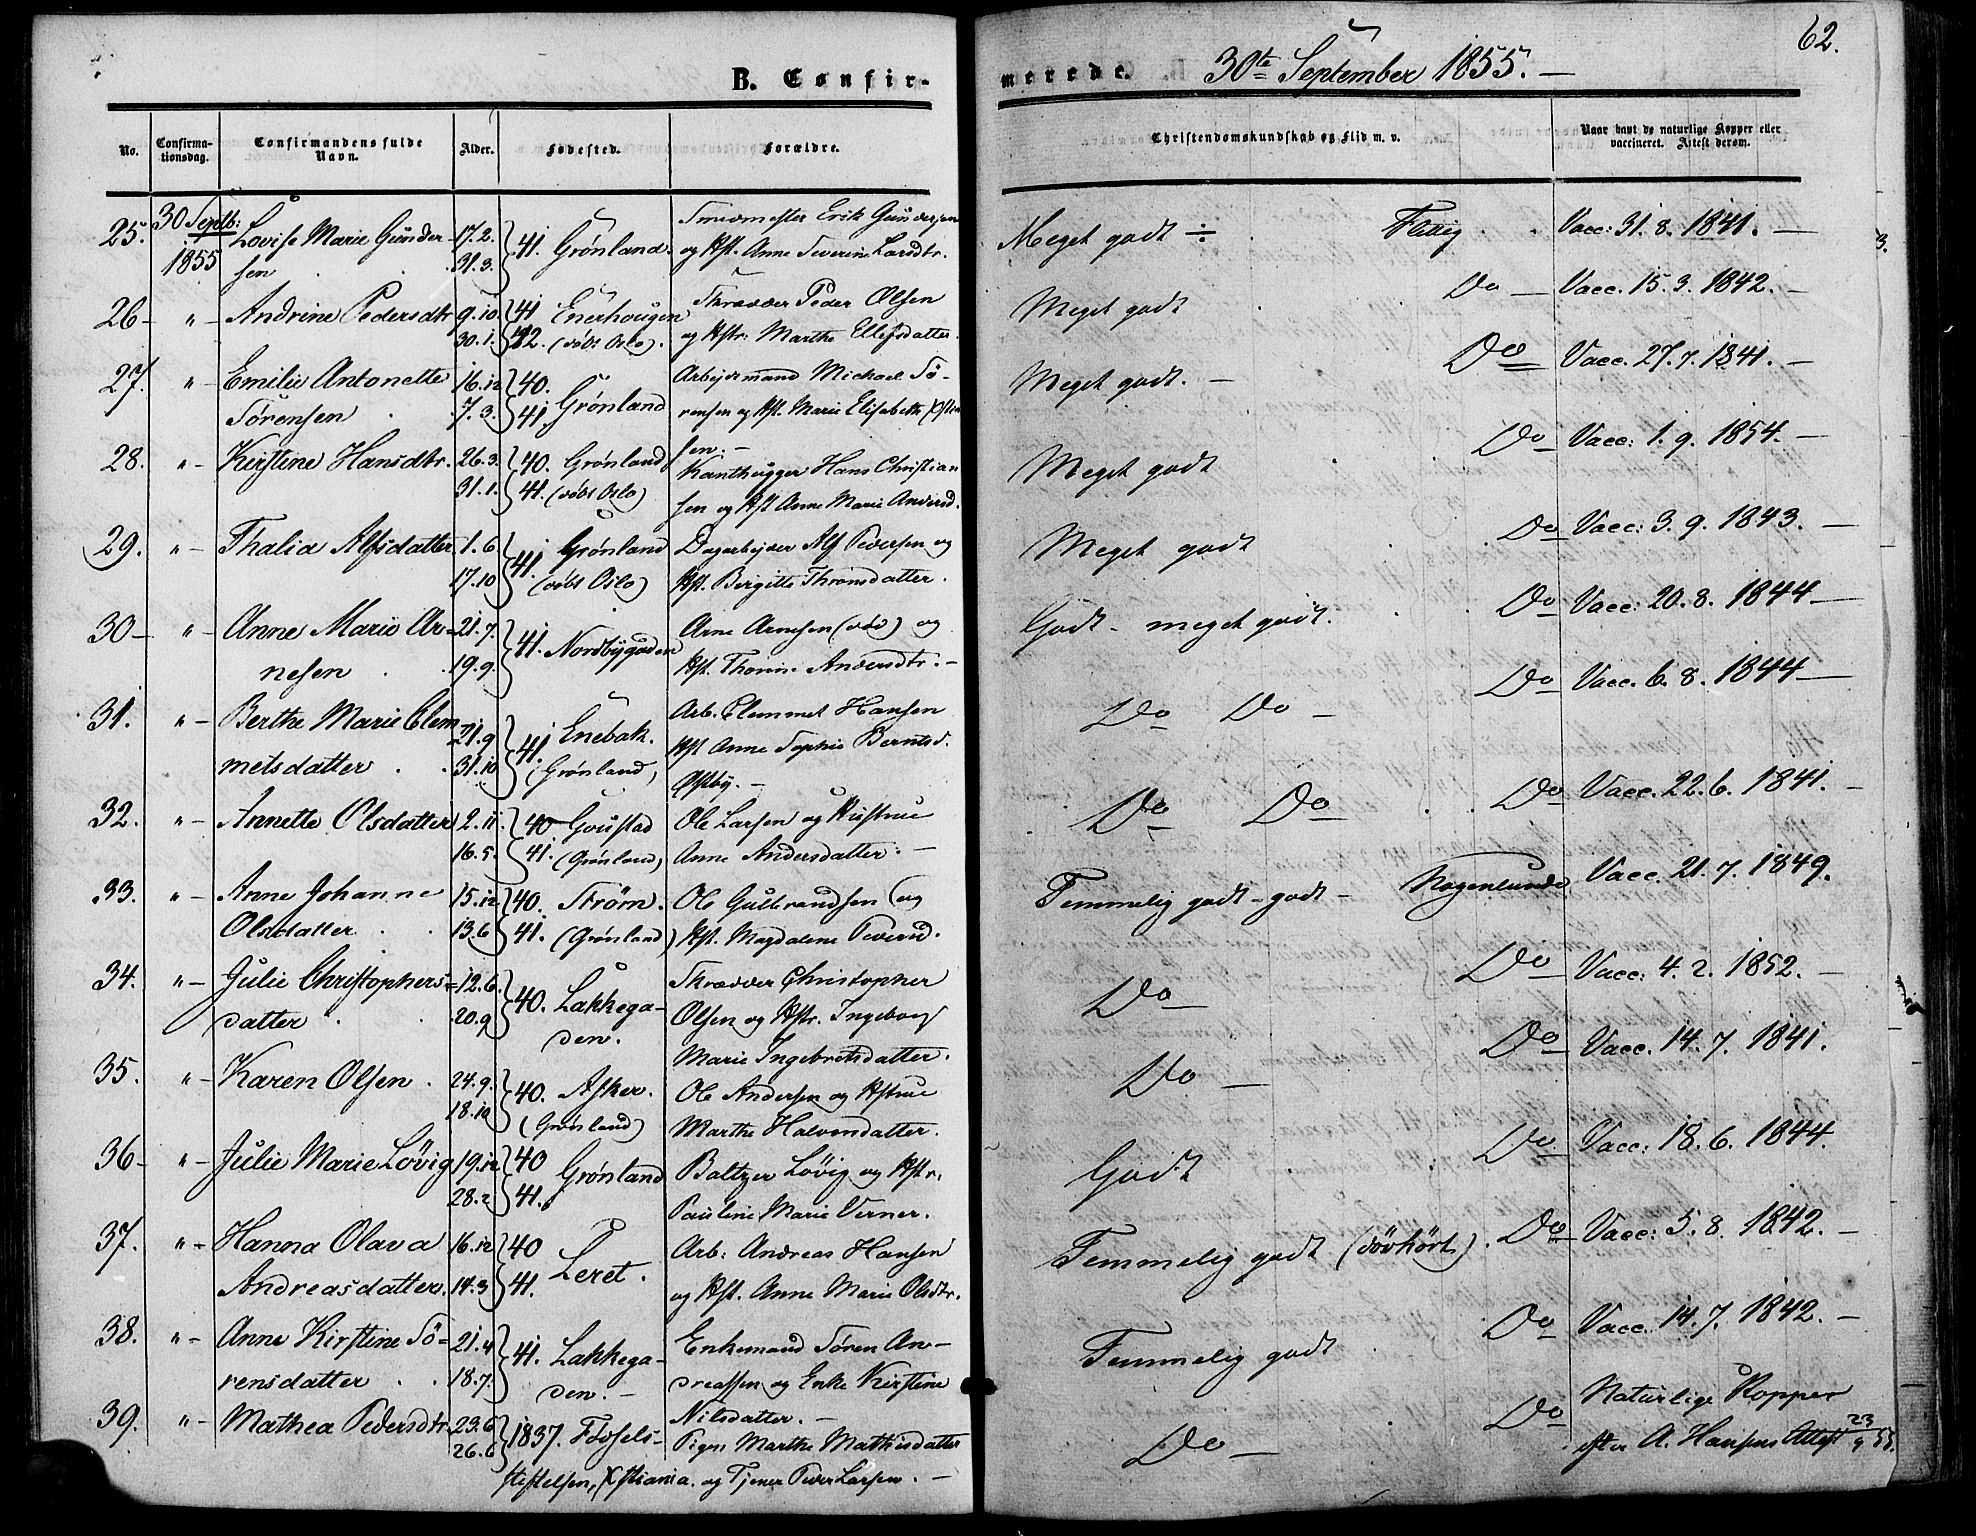 B. Confir-
No.
Confirma-
tionsdag.
Confirmandens fulde
Navn.
Alder.
Fødested.
Forældre.
25. 30 Septb: 1855 Lovise Marie Gunder- 17.2. 41. Grønland. Smedmester Erik Gundersen
sen 31.3. og Hst. Anne Severine Larsdtr.
26 - " - Andrine Pedersdtr 9.10 41 Enerhougen Skrædder Peder Olsen
30.1. 42. (døbt Oslo). og Hstr: Marthe Ellefsdatter.
27. " - Emilie Antonette 16.12 40. Grønland Arbeidsmand Michael Sö-
Sörensen 7.3. 41. rensen og Hst. Marie Elisabeth Xstian
sen. -
28. " - Kirstine Hansdtr. 26.3. 40. Grønland Kanthugger Hans Christian
31.1. 41. (døbt Oslo) sen og Hst Anne Marie Andersd.
29. " - Thalia Alfsdatter 1.6 41. Grønland Dagarbejder Alf Pedersen og
17.10 (døbt Oslo) Hst. Bergitte Thronsdatter.
30 - " - Anne Marie Ar= 21.7. 41. Nordbygaden Arne Arnesen (död) og
nesen 19.9. Hst. Thorine Andersdtr. -
31. " - Berthe Marie Clem 21.9 41. Enebak. Arb. Clemmet Hansen
metsdatter 31.10 (Grønland) Hst Anne Sophie Berntsd.
Østby. -
32. " - Annette Olsdatter 2.11. 40 Goustad Ole Larsen og Hustrue
16.5. 41. (Grønland) Anne Andersdatter. -
33. " - Anne Johanne 15.12 40. Strøm. Ole Gulbrandsen (og
Olsdatter 13.6 41. (Grønland) Hst. Magdalene Pedersd.
34. " - Julie Christophers= 12.6. 40. Lakkega- Skrædder Christopher
datter 20.9 den. Olsen og Hstr. Ingeborg
Marie Ingebretsdatter.
35. " - Karen Olsen 24.9. 40. Asker. Ole Andersen og Hstrue
18.10 (Grønland) Marthe Halvorsdatter.
36 - " - Julie Marie Lövig 19.12 40 Grønland Baltzer Lövig og Hstr.
28.2 41. Pauline Marie Verner.
37. " - Hanna Olava 16.12 40 Leret. Arb: Andreas Hansen
Andreasdatter. 14.3 41. og Hst. Anne Marie Olsdtr.
38. " - Anne Kirstine Sö- 21.4 41. Lakkega- Enkemand Sören An-
rensdatter 18.7. den. - dreassen og Enke Kirstine
Nilsdatter. -
39. " - Mathea Pedersdtr. 23.6 1837. Fødsels- Pigen Marthe Mathisdatter
26.6 stiftelsen, Xstiania. og Tjener Peder Larsen. -
merede. 30te September 1855. -
62.
Christendomskundskab og Flid m. v.
Naar havt de naturlige Kopper eller
vaccineret. Attest derom.
Meget godt ÷ Flittig Vacc: 31. 8. 1841. -
Meget godt Do - Vacc. 15. 3. 1842. -
Meget godt. - Do Vacc. 27. 7. 1841. -
Meget godt Do Vacc: 1. 9. 1854. -
Meget godt Do Vacc: 3. 9. 1843. -
Godt - meget godt. Do Vacc: 20. 8. 1844 -
Do Do - Do Vacc. 6. 8. 1844 -
Do Do Do Vacc. 22. 6. 1841. -
Temmelig godt - godt - Nogenlunde Vacc. 21. 7. 1849.
Do Do Vacc: 4. 2. 1852. -
Do - Do Vacc. 14. 7. 1841.
Godt Do Vacc: 18. 6. 1844.
Temmelig godt (døvhørt) Do Vacc: 5. 8. 1842. -
Temmelig godt Do Vacc. 14. 7. 1842. -
Do - Do Naturlige Kopper
efter A. Hansens Attest 23/9 55.